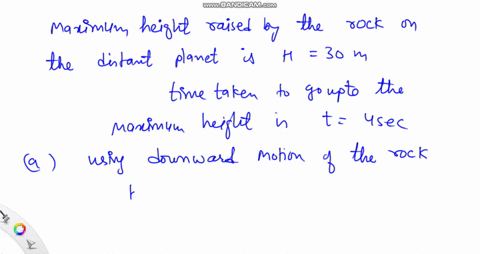 WWW.BANDICAM.COM
Maximum height raised by the rock on
the distant planet is H = 30 m
time taken to go upto the
maximum height is t = 4sec
(a) using downward motion of the rock